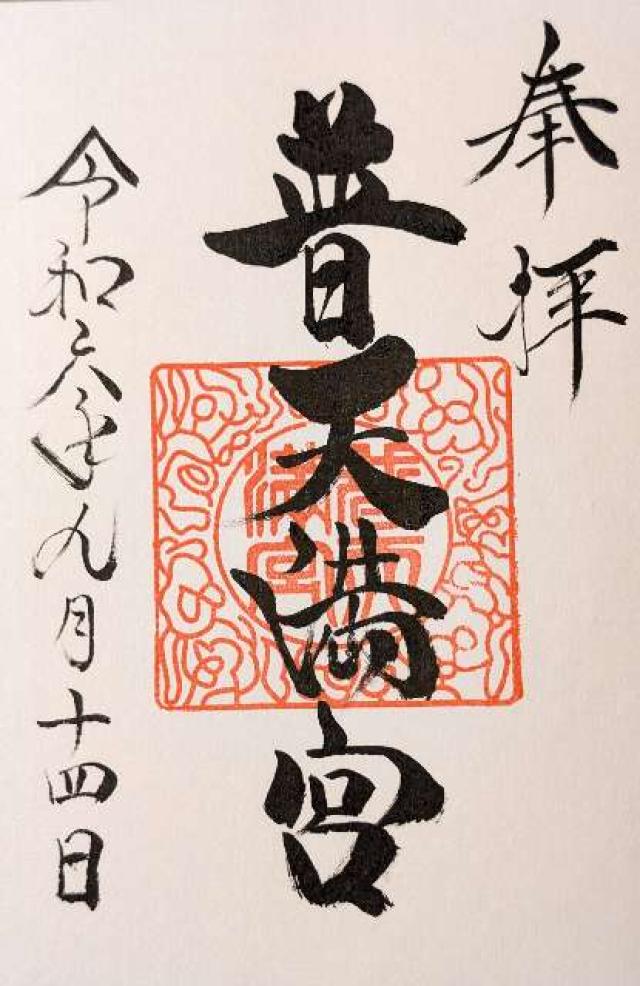 奉拝
普天満宮
令和六年九月十四日